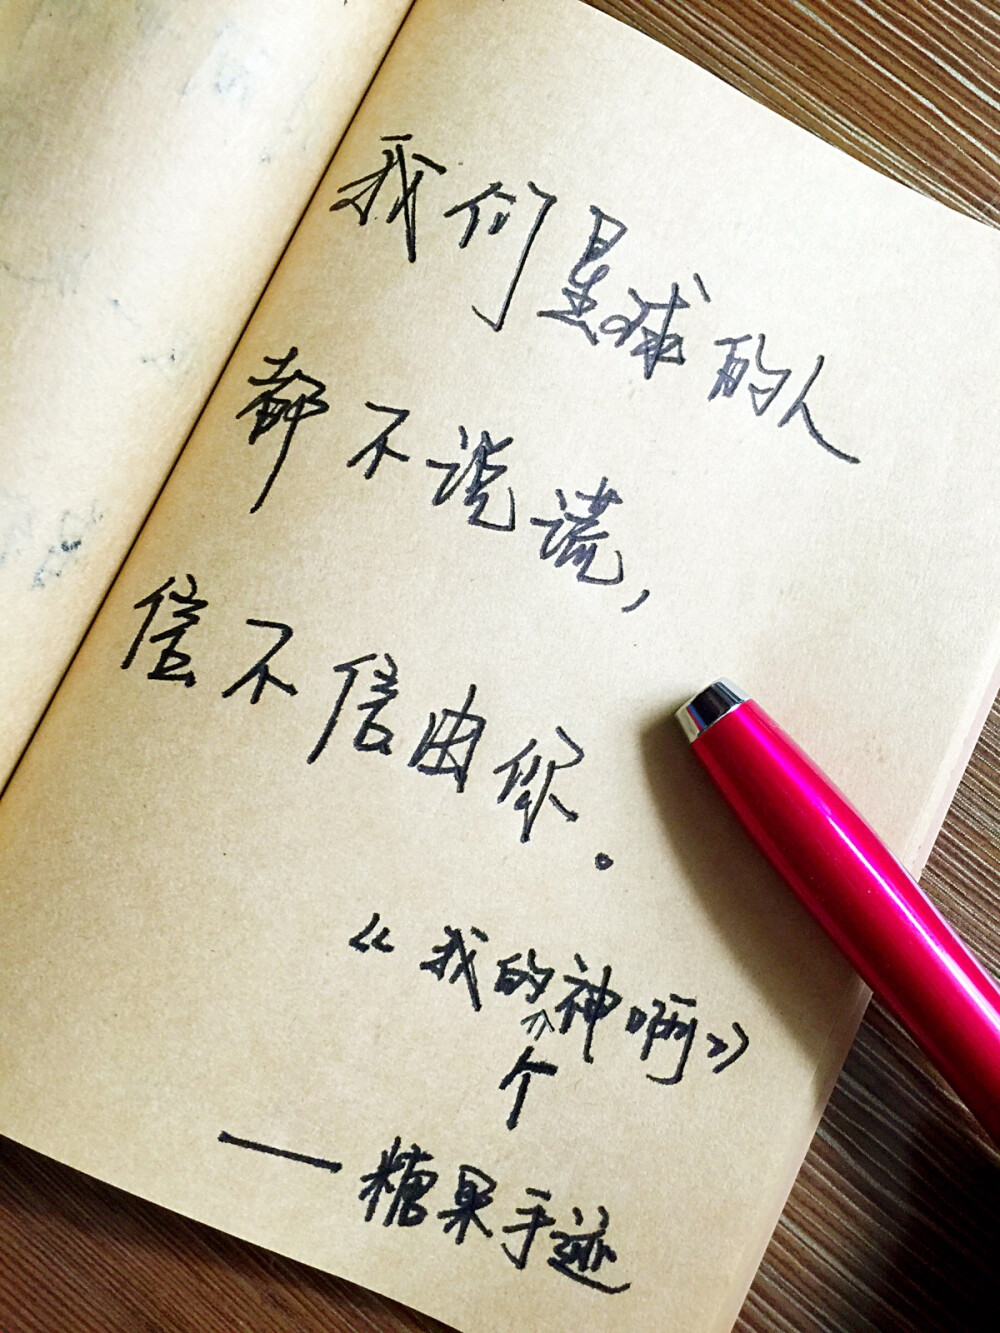 我们星球的人
都不说谎，
信不信由你。
《我的个神啊》
——糖果手迹